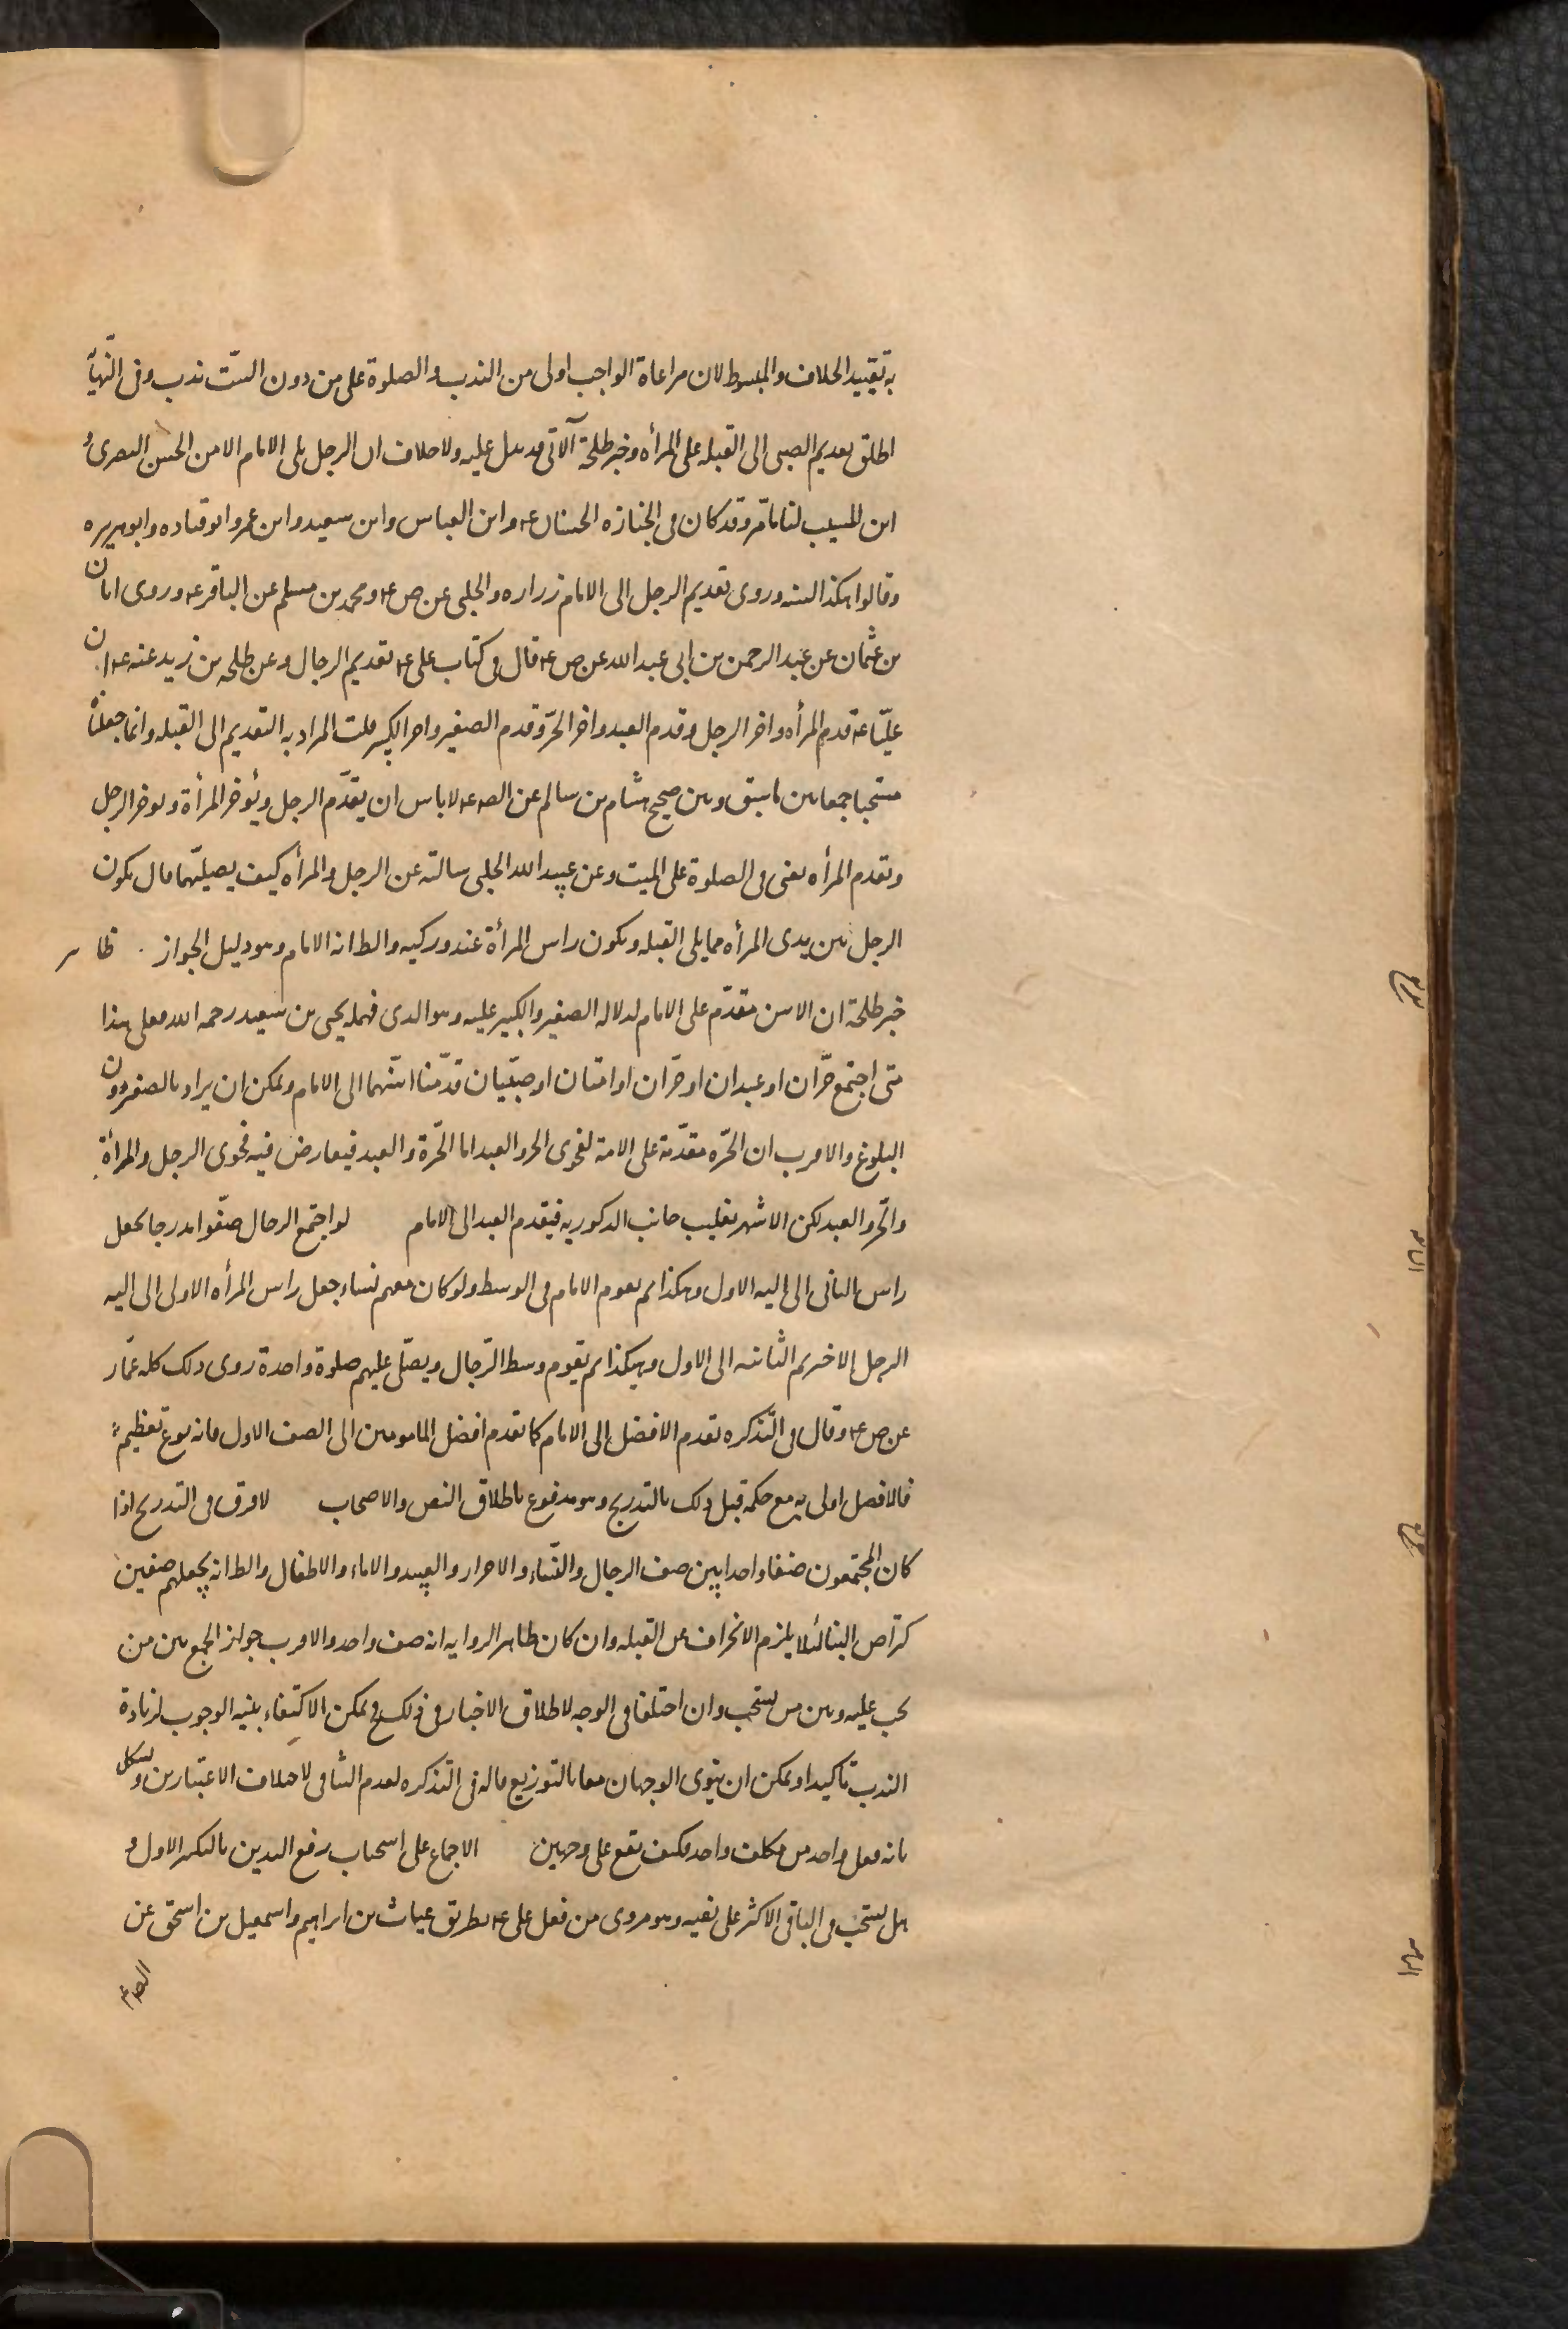 به تقييد الخلاف والمبسوط لان مراعاة الواجب اولى من الندب والصلوة على من دون الستّ ندب وفى النّهاية
اطلق تقديم الصبى الى القبله على المرأه وخبر طلحة الآتى قد يدل عليه ولا خلاف ان الرجل يلى الامام الا من الحسن البصرى و
ابن المسيب لنا ما مرّ وقد كان فى الجنازه الحسنان ع وابن العباس وابن سعيد وابن عمر وابو قتاده وابو هريره
وقالوا هكذا السنه وروى تقديم الرجل الى الامام زراره والحلبى عن ص ع ومحمد بن مسلم عن الباقر ع وروى ابان
بن عثمان عن عبد الرحمن بن ابى عبد الله عن ص ع قال فى كتاب على ع تقديم الرجال وعن طلحه بن زيد عنه ع ان
عليّا ع قدم المرأه واخر الرجل وقدم العبد واخر الحرّ وقدم الصغير واخر الكبير قلت المراد به التقديم الى القبله وانما جعلناه
مستحبا جمعا بين ما سبق وبين صحيح هشام بن سالم عن الص ع لا باس ان يقدّم الرجل ويؤخر المرأة ويوخر الرجل
وتقدم المرأه يعنى فى الصلوة على الميت وعن عبيد الله الحلبى سالته عن الرجل والمرأه كيف يصلّيهما قال يكون
الرجل بين يدى المرأه مما يلى القبله ويكون راس المرأة عند وركيه والظ انه الامام وهو دليل الجواز . ظاهر
خبر طلحة ان الاسن مقدّم على الامام لدلاله الصغير والكبير عليه وهو الذى فهمه يحيى بن سعيد رحمه الله فعلى هذا
متى اجتمع حرّان او عبدان او حرّتان او امتان او صبيّان قدّمنا اسنّهما الى الامام ويمكن ان يراد بالصغر دون
البلوغ والاقرب ان الحرّه مقدّمة على الامة لفحوى الحر والعبد اما الحّرة والعبد فيعارض فيه فحوى الرجل والمرأة
والحرّ والعبد لكن الاشهر تغليب جانب الذكوريه فيقدم العبد الى الامام لو اجتمع الرجال صفّوا مدرجا يجعل
راس الثانى الى اليه الاول وهكذا ثم يقوم الامام فى الوسط ولو كان معهم نساء جعل راس المرأه الاولى الى اليه
الرجل الاخير ثم الثانيه الى الاولى وهكذا ثم يقوم وسط الرّجال ويصلّى عليهم صلوة واحدة روى ذلك كله عمّار
عن ص ع وقال فى التّذكره تقدم الافضل الى الامام كما تقدم افضل المامومين الى الصف الاول فانه نوع تعظيم
فالافضل اولى به مع حكمه قبل ذلك بالتدريج وهو مدفوع باطلاق النص والاصحاب لا فرق فى التدريج اذا
كان المجتمعون صنفا واحدا بين صف الرجال والنّساء والاحرار والعبيد والاماء والاطفال والظ انه يجعلهم صفين
كتراص البنا لئلا يلزم الانحراف عن القبله وان كان ظاهر الروايه انه صف واحد والاقرب جواز الجمع بين من
يجب عليه وبين من يستحب وان اختلفا فى الوجه لاطلاق الاخبار فى ذلك فح يمكن الاكتفاء بنيه الوجوب لزيادة
الندب تاكيدا ويمكن ان ينوى الوجهان معا بالتوزيع قاله فى التذكره لعدم التنافى لاختلاف الاعتبارين ويشكل
بانه فعل واحد من مكلف واحد فكيف يقع على وجهين الاجماع على استحباب رفع اليدين بالتكبير الاول و
هل يستحب فى الباقى الاكثر على نفيه وهو مروى من فعل على ع بطريق غياث بن ابراهيم واسمعيل بن اسحق عن
الص ع